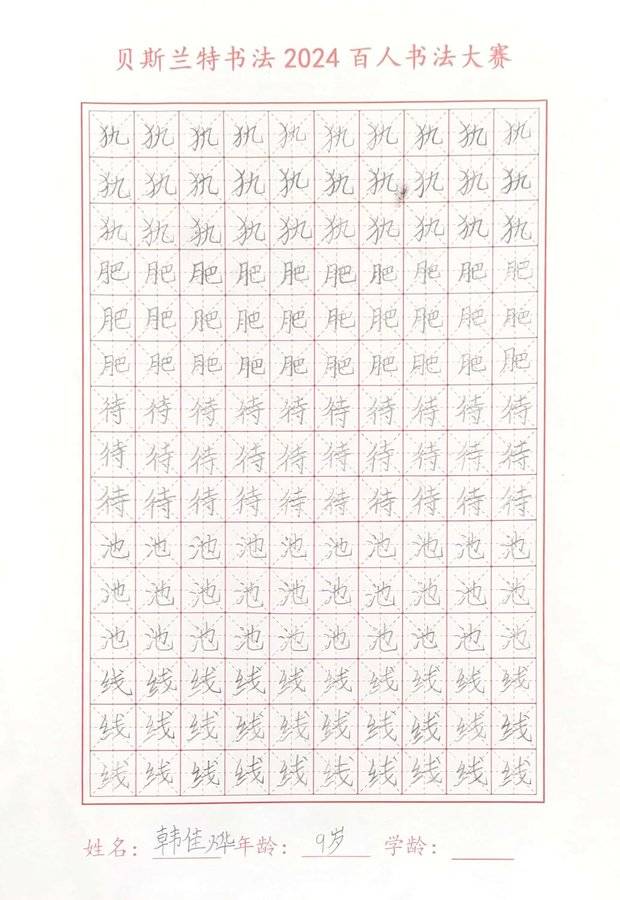 贝斯兰特书法2024百人书法大赛
犰犰犰犰犰犰犰犰犰犰
犰犰犰犰犰犰犰犰犰犰
犰犰犰犰犰犰犰犰犰犰
肥肥肥肥肥肥肥肥肥肥
肥肥肥肥肥肥肥肥肥肥
肥肥肥肥肥肥肥肥肥肥
待待待待待待待待待待
待待待待待待待待待待
待待待待待待待待待待
池池池池池池池池池池
池池池池池池池池池池
池池池池池池池池池池
线线线线线线线线线线
线线线线线线线线线线
线线线线线线线线线线
姓名：韩佳烨年龄：9岁 学龄：